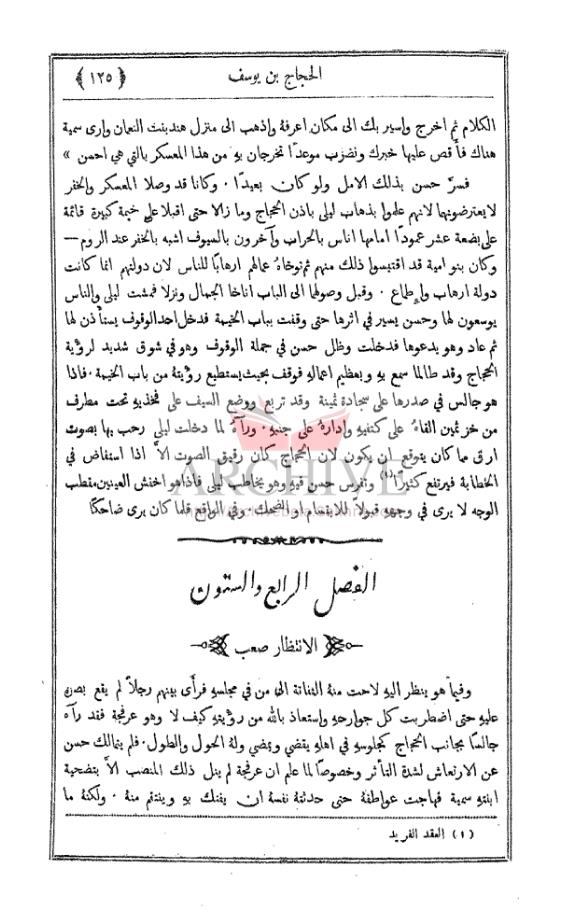 الحجاج بن يوسف
﴿ ١٢٥ ﴾
الكلام ثم اخرج واسير بك الى مكان اعرفة واذهب الى منزل هند بنت النعمان وارى سمية
هناك فأقص عليها خبرك ونضرب موعدًا تخرجان بهِ من هذا المعسكر بالتي هي احسن »
فسرَّ حسن بذلك الامل ولو كان بعيدًا . وكانا قد وصلا المعسكر والخفر
لا يعترضونها لانهم علموا بذهاب ليلى باذن الحجاج وما زالا حتى اقبلا على خيمة كبيرة قائمة
على بضعة عشر عمودًا امامها اناس بالحراب وآخرون بالسيوف اشبه بالخفر عند الروم —
وكان بنو امية قد اقتبسوا ذلك منهم ثم توخاهُ عمالهم ارهابًا للناس لان دولتهم انما كانت
دولة ارهاب واطماع . وقبل وصولها الى الباب اناخا الجمال ونزلا فمشت ليلى والناس
يوسعون لها وحسن يسير في اثرها حتى وقفت بباب الخيمة فدخل احد الوقوف يستأذن لها
ثم عاد وهو يدعوها فدخلت وظل حسن في جملة الوقوف وهو في شوق شديد لرؤية
الحجاج وقد طالما سمع بهِ وبعظيم اعماله فوقف بحيث يستطيع رؤيتهُ من باب الخيمة . فاذا
هو جالس في صدرها على سجادة ثمينة وقد تربع ووضع السيف على فخذيهِ تحت مطرف
من خز ثمين القاهُ على كتفيهِ وادارهُ على جنبيهِ . ورآهُ لما دخلت ليلى رحب بها بصوت
ارق مما كان يتوقع ان يكون لان الحجاج كان رقيق الصوت الاَّ اذا استفاض في
الخطابة فيرتفع كثيرًا (١) وتفرس حسن فيهِ وهو يخاطب ليلى فاذا هو اخفش العينين مقطب
الوجه لا يرى في وجههِ قبولاً للابتسام او الضحك . وفي الواقع قلما كان يرى ضاحكًا
ARCHIVE
الفصل الرابع والستون
الانتظار صعب
وفيما هو ينظر اليهِ لاحت منهُ التفاتة الى من في مجلسهِ فرأى بينهم رجلاً لم يقع بصرهُ
عليهِ حتى اضطربت كل جوارحهِ واستعاذ بالله من رؤيتهِ كيف لا وهو عرفجة فقد رآه
جالسًا بجانب الحجاج كجلوسهِ في اهلهِ يقضي ويمضي ولهُ الحول والطول . فلم يتمالك حسن
عن الارتعاش لشدة التأثر وخصوصًا لما علم ان عرفجة لم ينل ذلك المنصب الاَّ بتضحية
ابنتهِ سمية فهاجت عواطفهُ حتى حدثتهُ نفسهُ ان يفتك بهِ وينتقم منهُ . ولكنهُ ما
(١) العقد الفريد